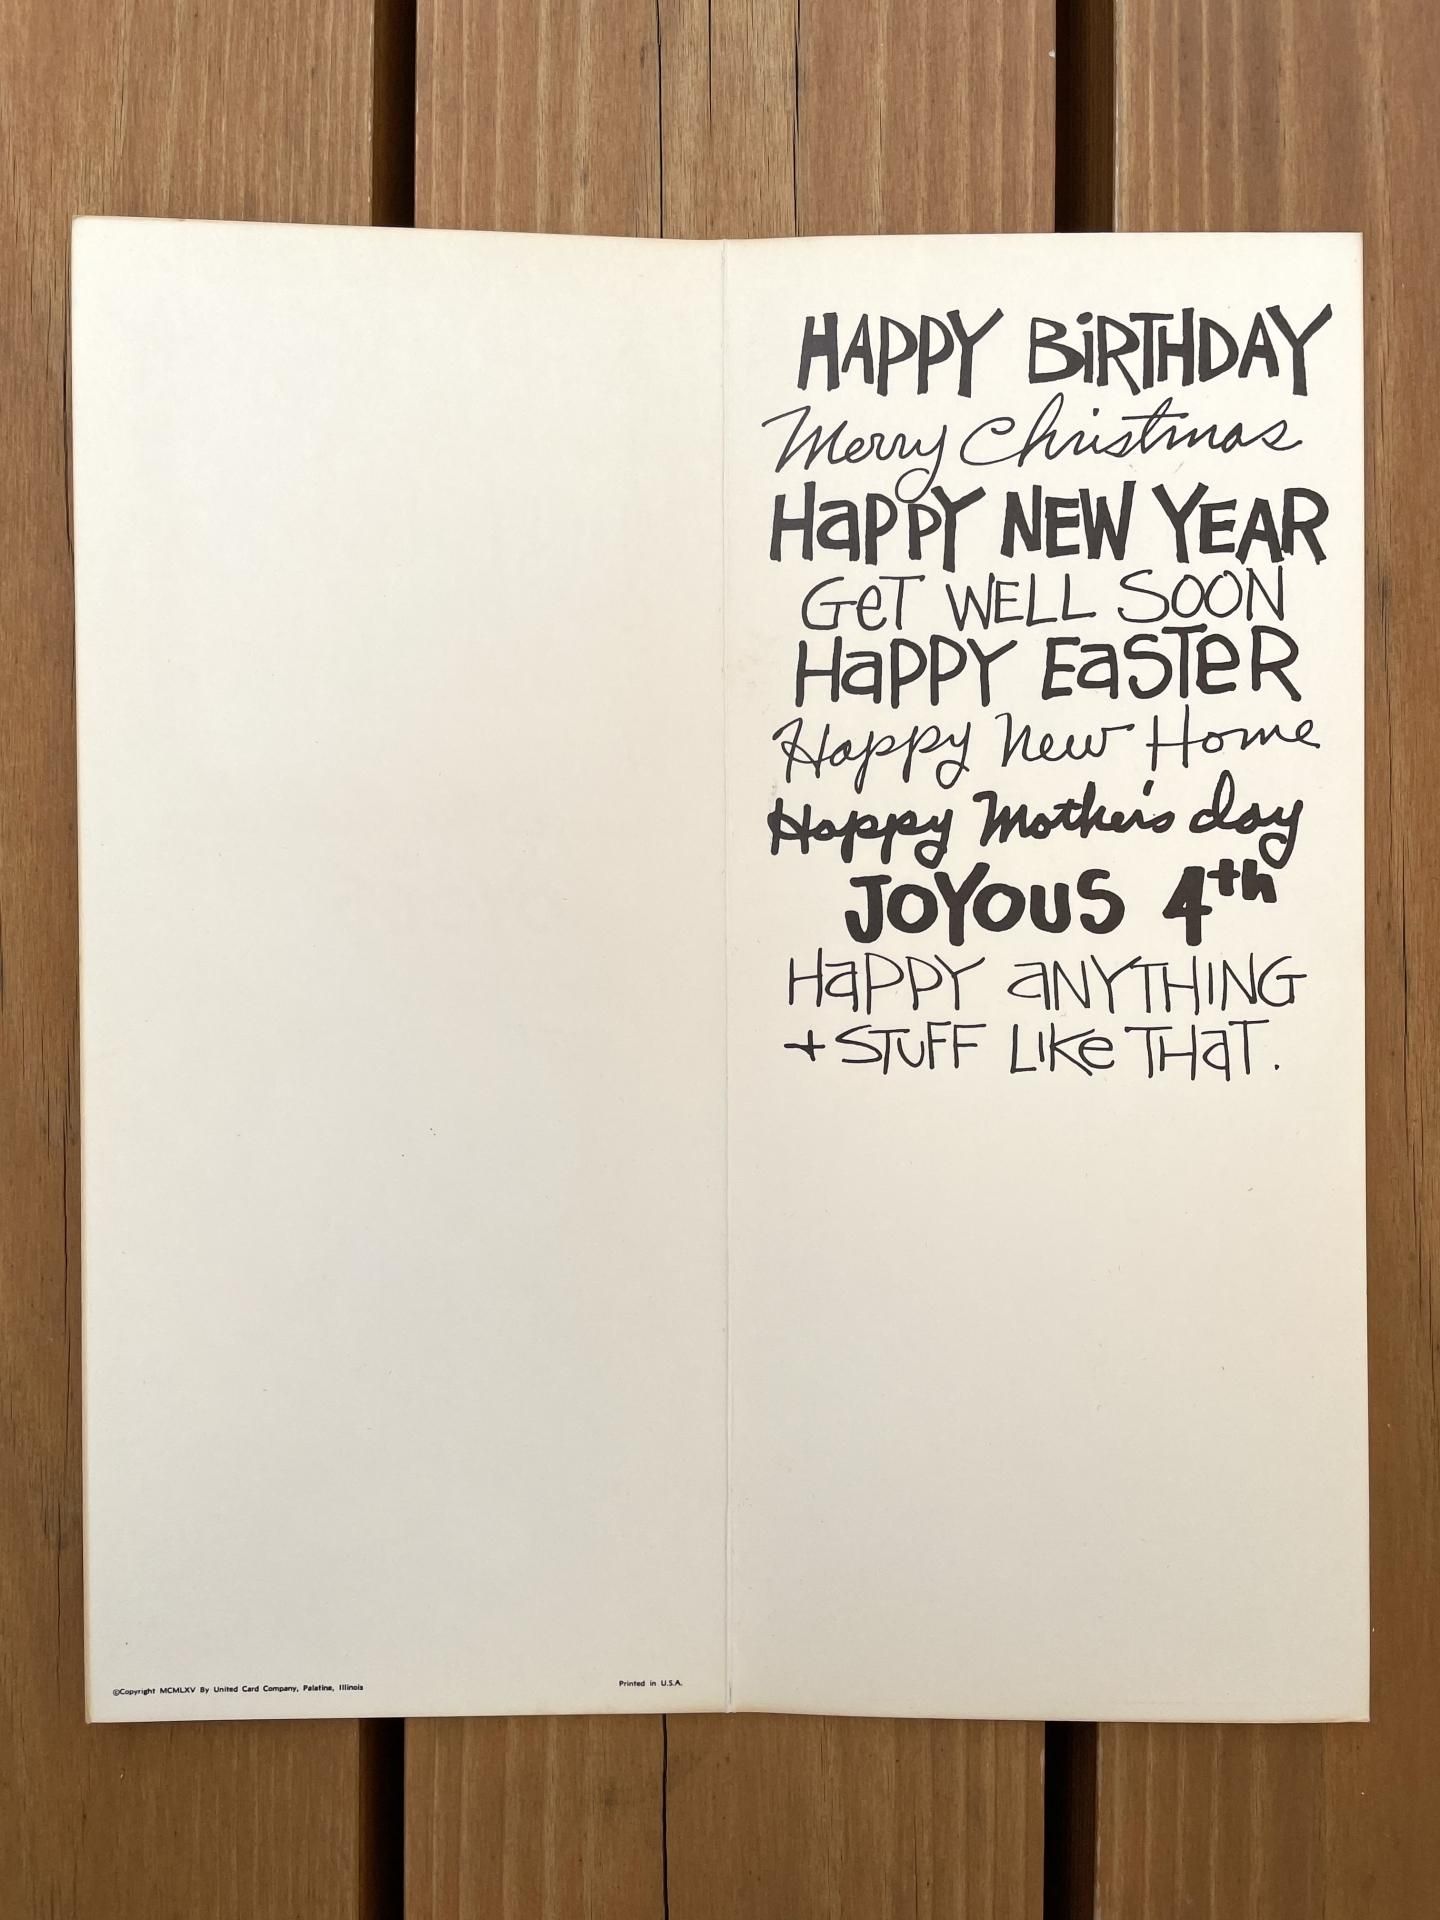 HAPPY BiRTHDAY
Merry Christmas
HaPPY NEW YEAR
GeT WELL SOON
HaPPY EaSTeR
Happy New Home
Happy Mother's day
JOYOUS 4th
HaPPY aNYTHING
+ STUFF LIKe THaT.
©Copyright MCMLXV By United Card Company, Palatine, Illinois
Printed in U.S.A.